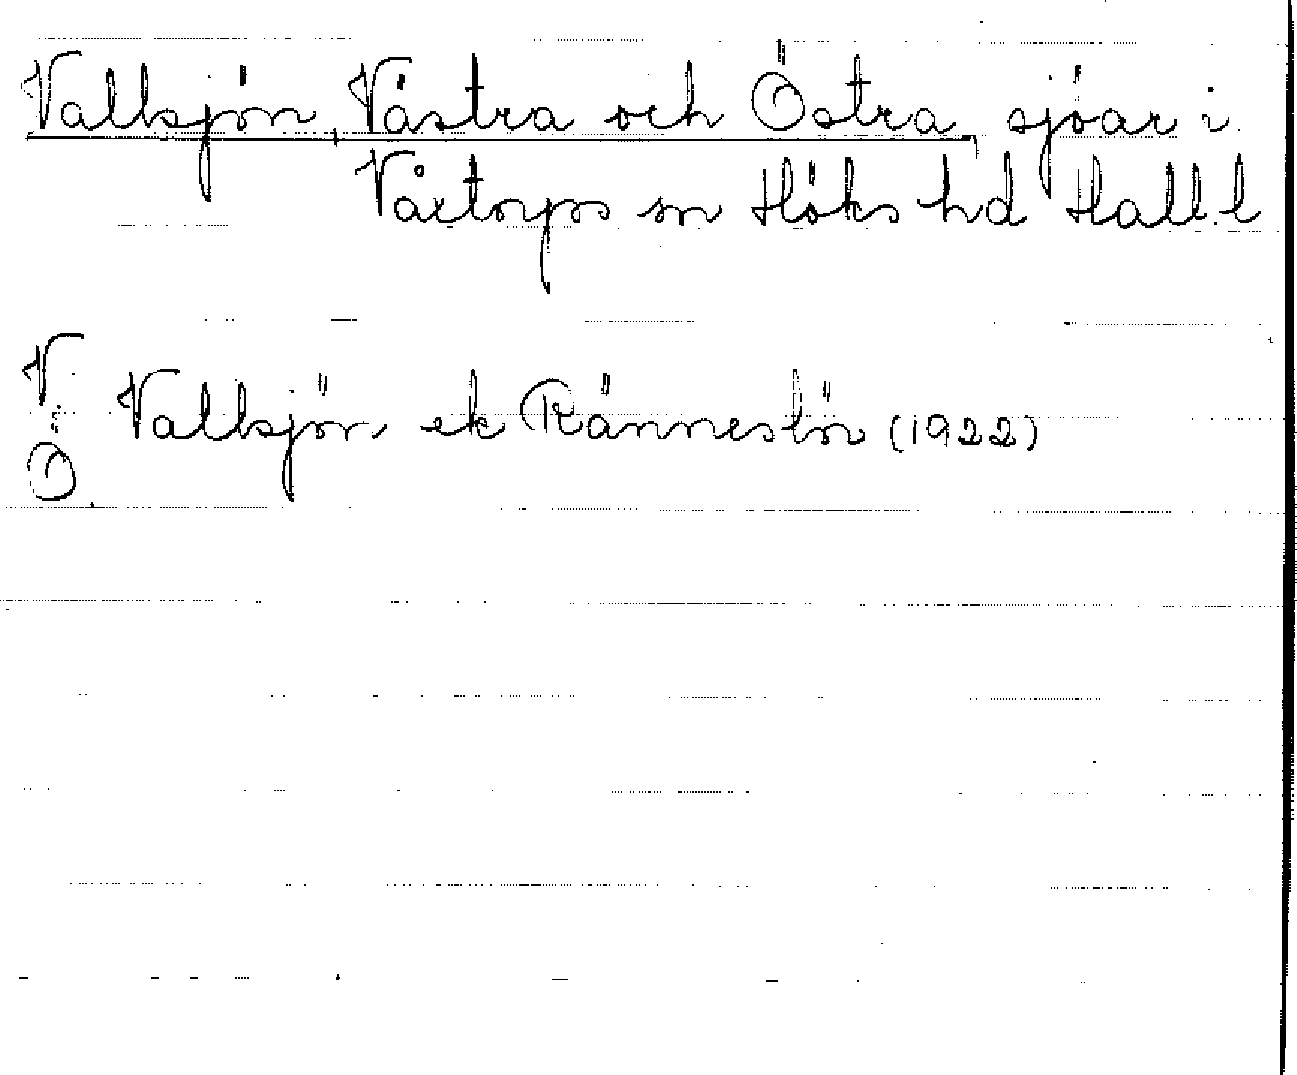 Vallsjön, Västra och Östra, sjöar i
Våxtorps sn Höks hd Hall. l
V.
Vallsjön, ek Ränneslöv (1922)
Ö.